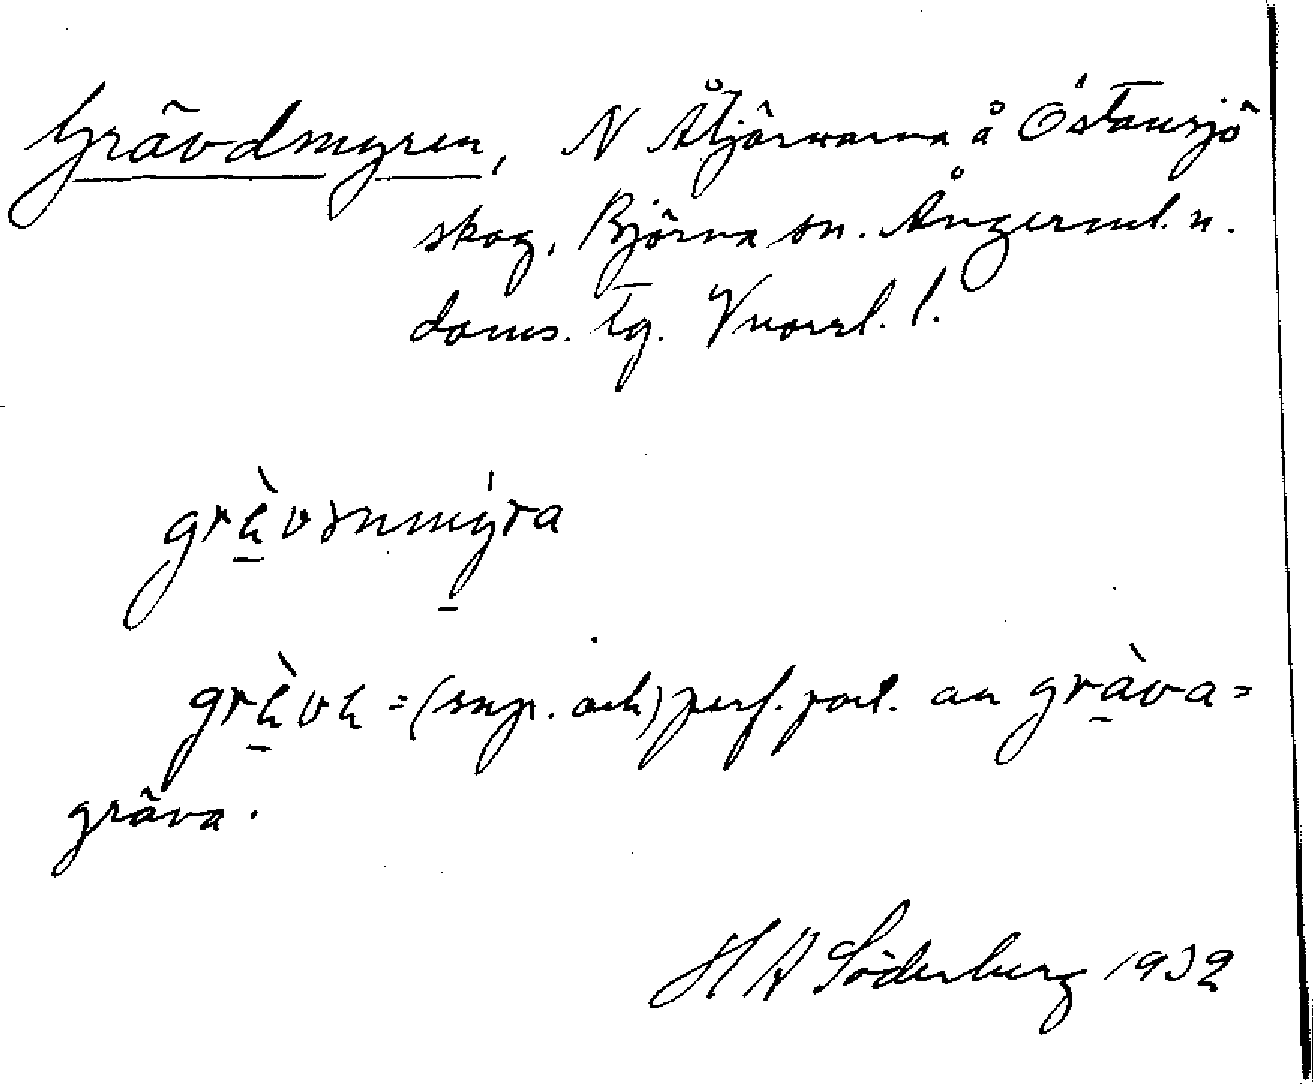 Grävdmyren, N Åtjärnarna å Östansjö
skog, Björna sn. Ångerml. n.
doms. tg.
grävi =(sup. och) perf. part. av gräva=
gräva.
H A Söderberg 1932